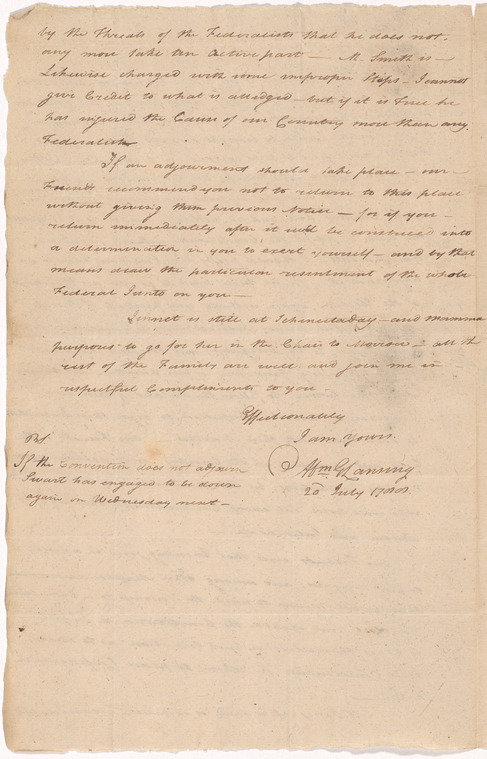 by the Threats of the Federalists that he does not
any more take an active part — M. Smith is —
Likewise charged with some improper Steps — I cannot
give Credit to what is alledged — but if it is true he
has injured the Cause of our Country more than any
Federalist
If an adjournment should take place — our
Friends recommend you not to return to this place
without giving them previous Notice — for if you —
return immediately after it will be construed into
a determination in you to exert yourself — and by that
means draw the particular resentment of the whole
Federal Junto on you —
is still at Schenectaday — and mamma
purposes to go for her in the Chair to Morrow — all the
rest of the Family are well and join me in
respectful Compliments to you.
Affectionately
I am Yours
Wm G Lansing
20 July 1788.
PS.
If the Convention does not adjourn
Swart has engaged to be down
again on Wednesday next —